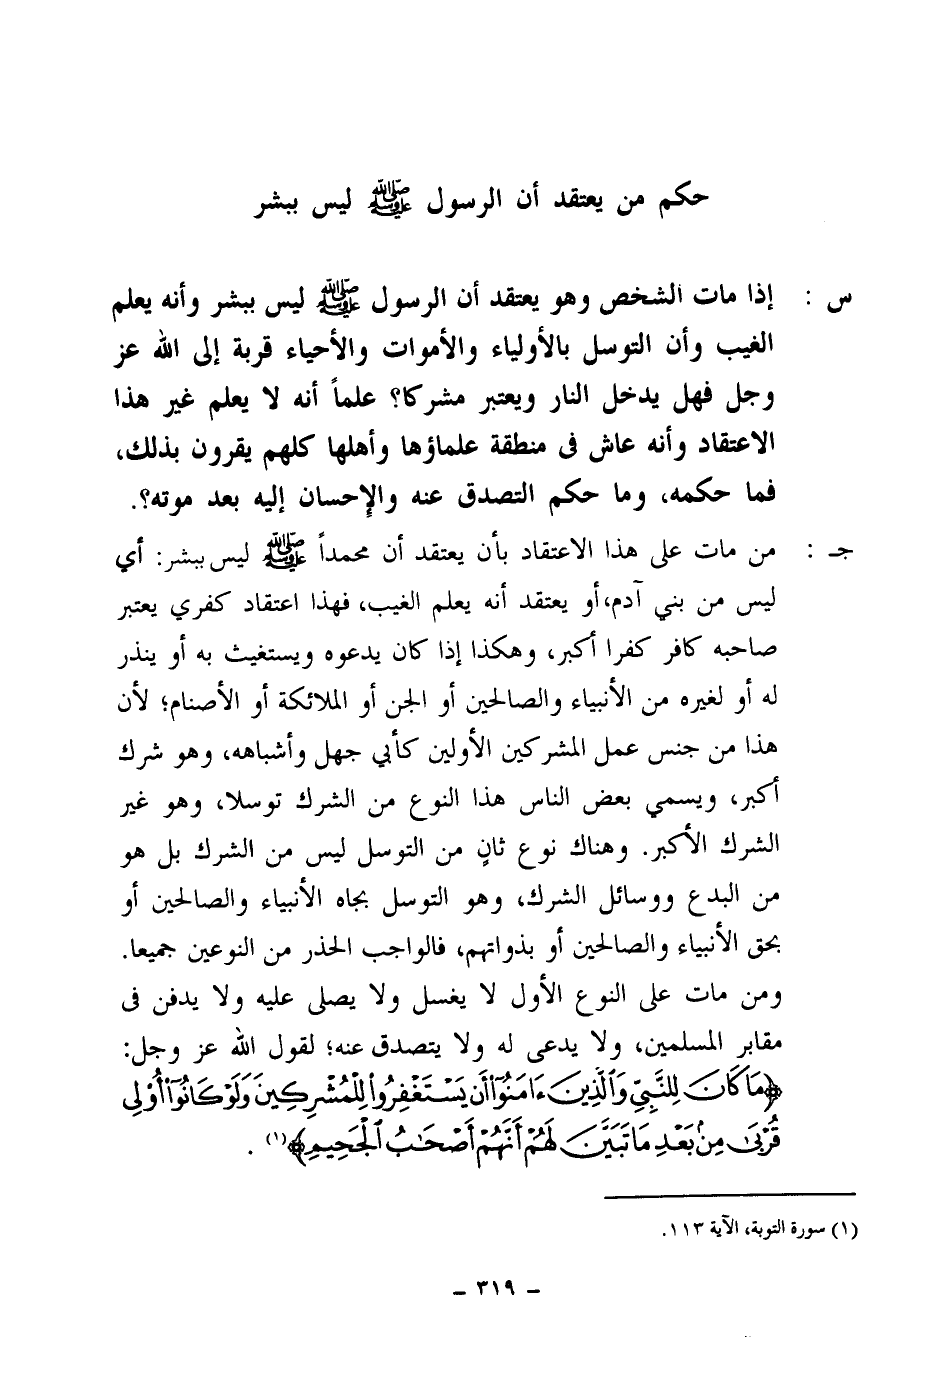 حكم من يعتقد أن الرسول ﷺ ليس ببشر
س : إذا مات الشخص وهو يعتقد أن الرسول ﷺ ليس ببشر وأنه يعلم
الغيب وأن التوسل بالأولياء والأموات والأحياء قربة إلى الله عز
وجل فهل يدخل النار ويعتبر مشركا؟ علماً أنه لا يعلم غير هذا
الاعتقاد وأنه عاش فى منطقة علماؤها وأهلها كلهم يقرون بذلك،
فما حكمه، وما حكم التصدق عنه والإحسان إليه بعد موته؟.
جـ : من مات على هذا الاعتقاد بأن يعتقد أن محمداً ﷺ ليس ببشر: أي
ليس من بني آدم، أو يعتقد أنه يعلم الغيب، فهذا اعتقاد كفري يعتبر
صاحبه كافر كفرا أكبر، وهكذا إذا كان يدعوه ويستغيث به أو ينذر
له أو لغيره من الأنبياء والصالحين أو الجن أو الملائكة أو الأصنام؛ لأن
هذا من جنس عمل المشركين الأولين كأبي جهل وأشباهه، وهو شرك
أكبر، ويسمي بعض الناس هذا النوع من الشرك توسلا، وهو غير
الشرك الأكبر. وهناك نوع ثانٍ من التوسل ليس من الشرك بل هو
من البدع ووسائل الشرك، وهو التوسل بجاه الأنبياء والصالحين أو
بحق الأنبياء والصالحين أو بذواتهم، فالواجب الحذر من النوعين جميعا.
ومن مات على النوع الأول لا يغسل ولا يصلى عليه ولا يدفن فى
مقابر المسلمين، ولا يدعى له ولا يتصدق عنه؛ لقول الله عز وجل:
﴿مَا كَانَ لِلنَّبِيِّ وَٱلَّذِينَ ءَامَنُوٓا۟ أَن يَسْتَغْفِرُوا۟ لِلْمُشْرِكِينَ وَلَوْ كَانُوٓا۟ أُو۟لِى
قُرْبَىٰ مِنۢ بَعْدِ مَا تَبَيَّنَ لَهُمْ أَنَّهُمْ أَصْحَـٰبُ ٱلْجَحِيمِ﴾(١) .
(١) سورة التوبة، الآية ١١٣.
- ٣١٩ -